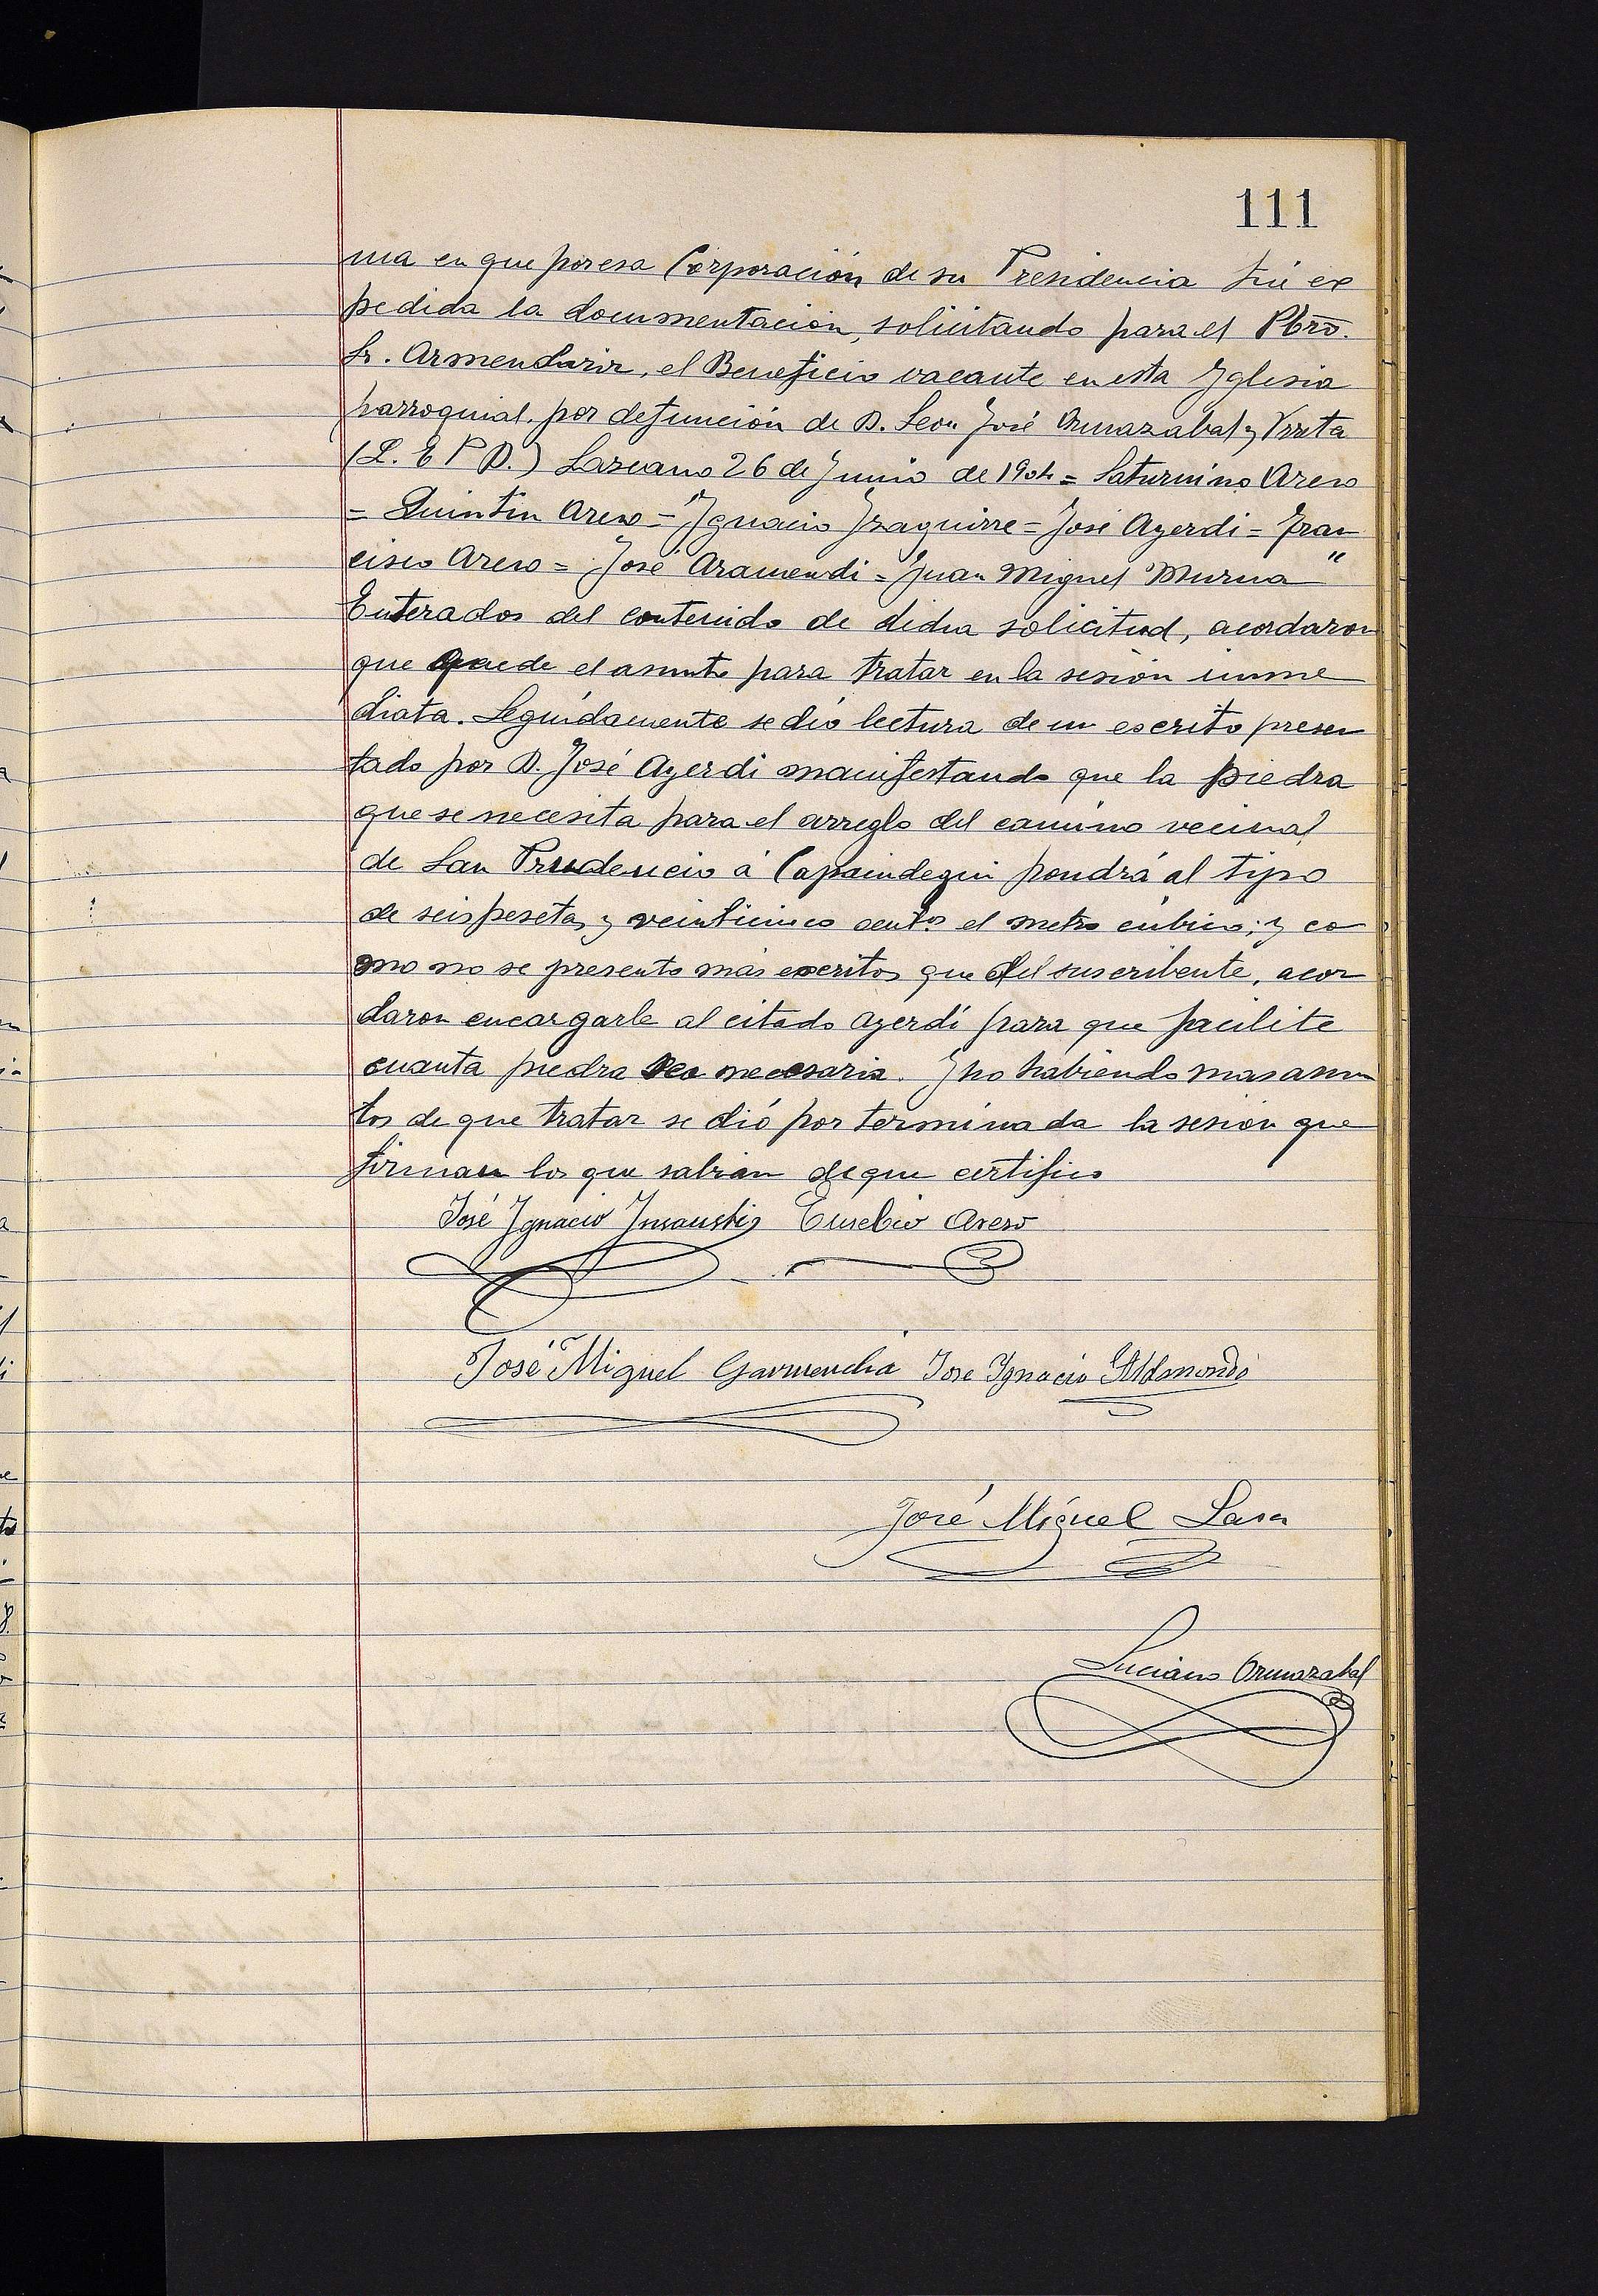 111
ma en que por esa Corporación de su Presidencia fué ex
pedida la documentación, solicitando para el Pbro.
Sr. Armendariz, el Beneficio vacante en esta Yglesia
parroquial, por defunción de D. Leon José Ormazabal y Urreta
(Q. E P D.) Lazcano 26 de Junio de 1904 = Saturnino Areso
= Quintin Areso = Ygnacio Yzaguirre = José Ayerdi = Fran
cisco Areso = José Aramendi = Juan Miguel Murua"
Enterados del contenido de dicha solicitud, acordaron
que quede el asunto para tratar en la sesión inme
diata. Seguidamente se dió lectura de un escrito presen
tado por D. José Ayerdi manifestando que la piedra
que se necesita para el arreglo del camino vecinal
de San Prudencio á Capaindegui pondrá al tipo
de seis pesetas y veinticinco cents el metro cúbico; y co
mo no se presento más escritos que del suscribente, acor
daron encargarle al citado Ayerdi para que facilite
cuanta piedra sea necesaria. Y no habiendo mas asun
tos de que tratar se dió por terminada la sesión que
firman los que sabian de que certifico
José Ygnacio Insausti Eusebio Areso
José Miguel Garmendia Jose Ygnacio Aldanondo
José Miguel Lasa
Luciano Ormazabal